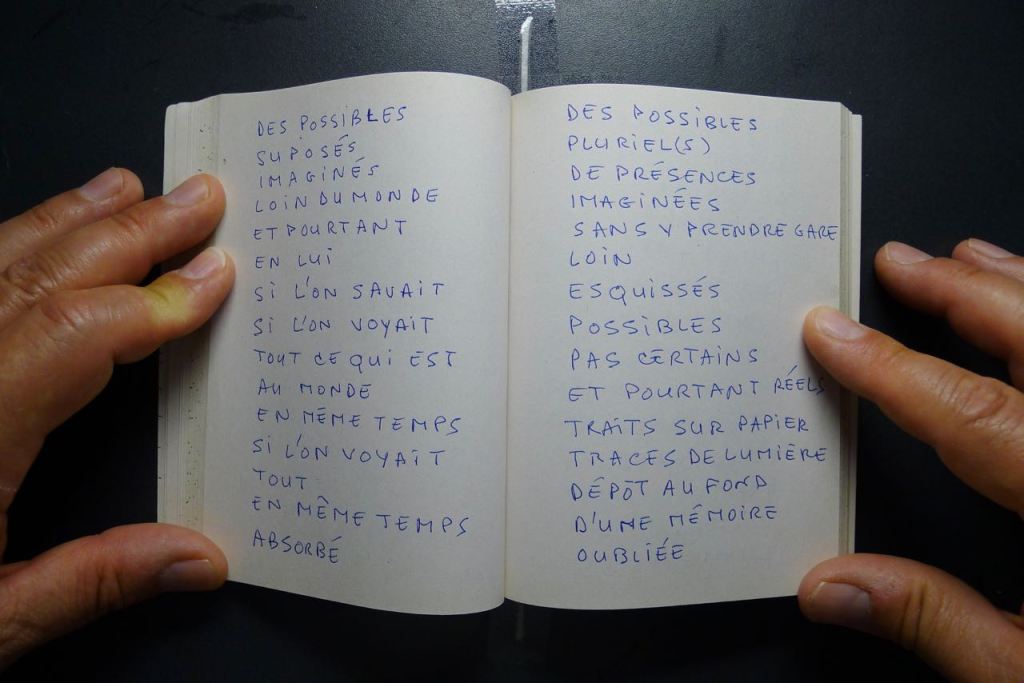 DES POSSIBLES
SUPOSÉS
IMAGINÉS
LOIN DU MONDE
ET POURTANT
EN LUI
SI L'ON SAVAIT
SI L'ON VOYAIT
TOUT CE QUI EST
AU MONDE
EN MÊME TEMPS
SI L'ON VOYAIT
TOUT
EN MÊME TEMPS
ABSORBÉ
DES POSSIBLES
PLURIEL(S)
DE PRÉSENCES
IMAGINÉES
SANS Y PRENDRE GARE
LOIN
ESQUISSÉS
POSSIBLES
PAS CERTAINS
ET POURTANT RÉELS
TRAITS SUR PAPIER
TRACES DE LUMIÈRE
DÉPÔT AU FOND
D'UNE MÉMOIRE
OUBLIÉE